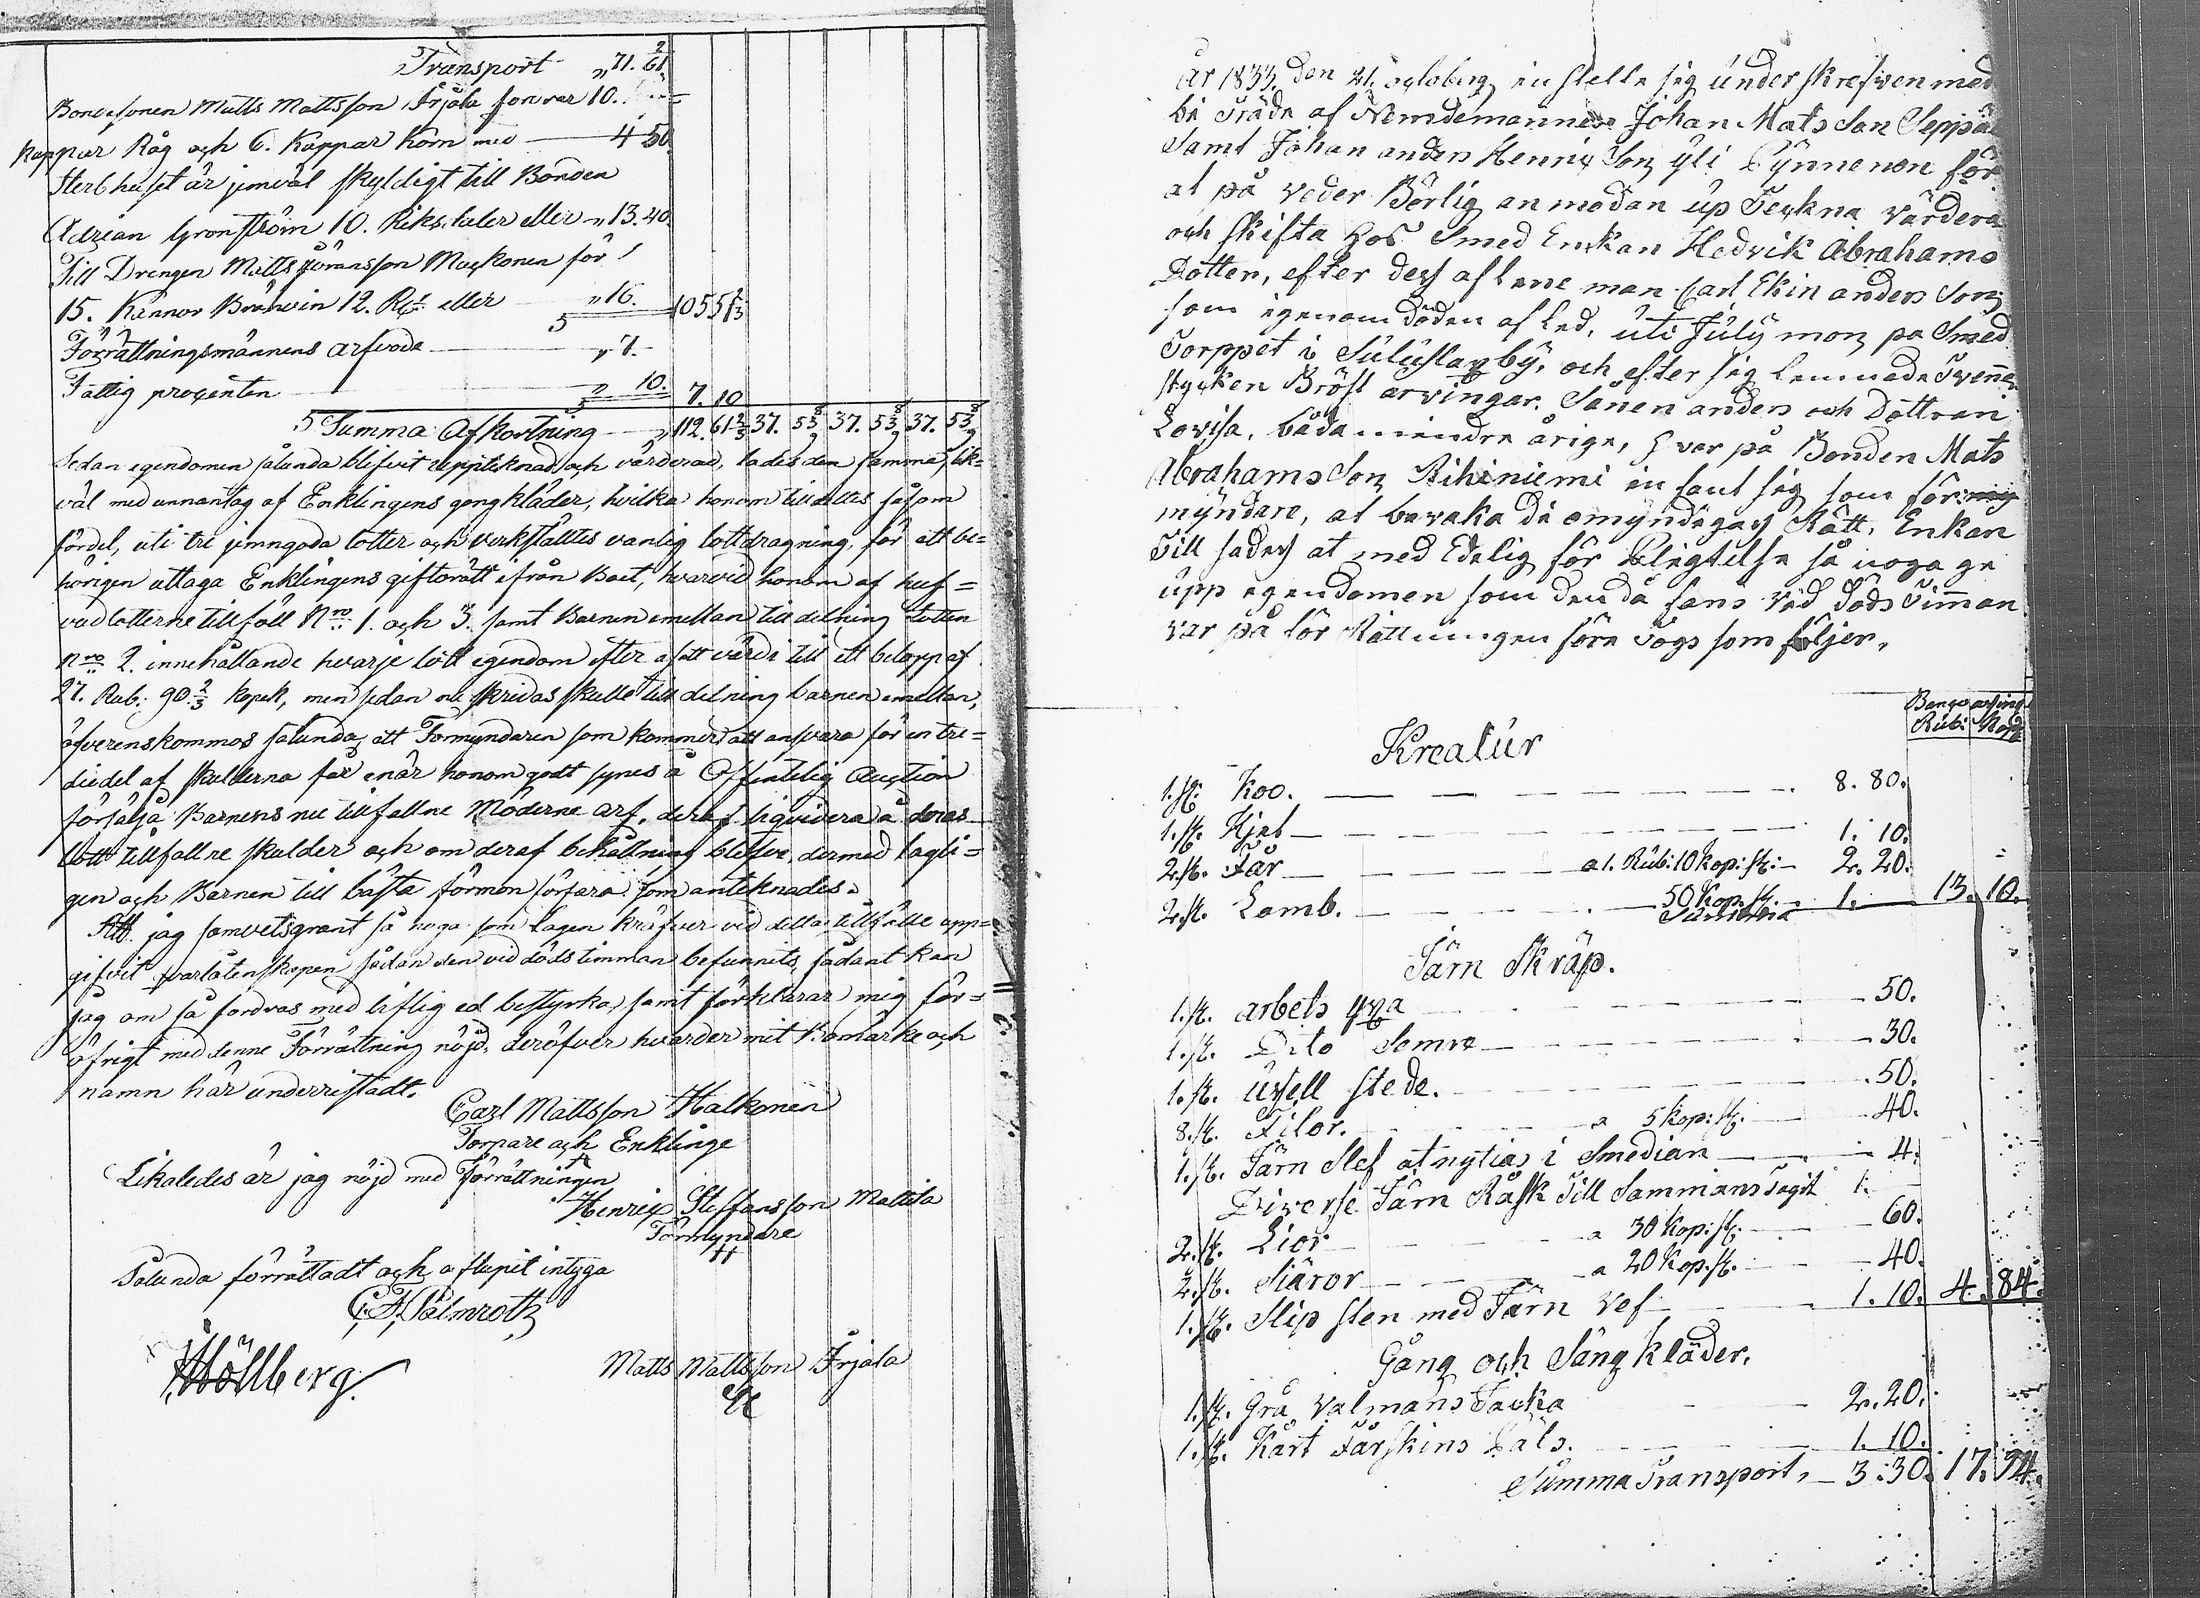 Transport „ 71. 61 2/3
Bondesonen Matts Mattsson Irjala for var 10.
Kappar Råg och 6. Kappar Korn med — 4 50.
Sterbhuset är jemväl skyldigt till Bonden
Adrian Gronström 10. Riksdaler eller „ 13. 40.
Till Drengen Matts Göransson Muckonen för
15. Kannor Bränvin 12. Rd. eller „ 16. 105 51 2/3
Förrättningsmännens arfvode — „ 7. —
Fattig procenten — „ 10. 7. 10
Summa Afkortning — „ 112. 61 2/3 37. 53 8/9 37. 53 8/9 37. 53 8/9
Sedan egendomen sålunda blifvit uppteknad och värderad, lades den samma, lik=
väl med unnantag af Enklingens gongkläder, hvilka honom tilldeltes såsom
fördel, uti tre jemngoda lotter och verkställtes vanlig lottdragning, för att be=
hörigen uttaga Enklingens giftorätt ifrån Boet, hvarvid honom af huf=
vudlotterne tillföll Nro 1. och 3. samt Barnen emellan till delning lotten
Nro 2. innehållande hvarje lott egendom efter åsatt värde till ett belopp af
27. Rub. 90 2/3 Kopek, men sedan nu skridas skulle till delning barnen emellan,
öfverenskommos sålunda, att Formyndaren som kommer att ansvara för en tre=
diedel af skulderna får enär honom godt synes å Offentelig Auction
försälja Barnens nu tillfallne Möderne arf, deraf liqvidera å deras
lott tillfallne skulder och om deraf behållning blefve, dermed lagli=
gen och Barnen till bästa förmon förfara som anteknades.
Att jag samvetsgrant så noga som Lagen kräfver vid detta tillfälle upp=
gifvit qvarlåtenskapen sådan den vid dödstimman befunnits, sådant kan
jag om så fordras med liflig ed bestyrka, samt förklarar mig för=
öfrigt med denne Förrättning nöjd, deröfver hvarder mit Bomärke och
namn här underristadt.
Carl Mattsson Halkonen
Torpare och Enklinge
Likaledes är jag nöjd med Förrättningen
Henric Steffansson Mattila
Formyndare
Sålunda förrättadt och aflupit intyga
C. F. Palmroth
Höllberg
Matts Mattsson Irjala
År 1833. den 21. octoberg in stelte sig under skrefven med
bi träde af Nemdemannen Johan Mats Son Seppä
Samt Johan anders Henric Son yli Pynnenen för
at på veder Börlig an modan up Teckna värdera
och skifta hos Smed Enkan Hedvik Abrahams
Dotter, efter dess aflene man Carl Ekin anders Son
som igenom döden afled, uti July mon på Smed
Torppet i Sulusla by, och efter sig lemnade Tvenne
stycken Bröst arvingar. Sonen anders och Dottren
Lovisa, båda mindre årige, hvar på Bonden Mats
Abrahams Son Rihiniemi in fant sig som för
myndare, at bevaka de omyndigas Rätt, Enkan
Till sades at med Edelig för Pligtelse så noga ge
upp egendomen som den då fans vid döds Timman
var på för Rättningen före Togs som följer,
Banco assing
Rub: Kop
Kreatur
1. st. Koo. — 8. 80.
1. st. — 1. 10.
2. st. Får — a 1. Rub: 10 kop: st: — 2. 20.
2. st. Lamb. — 50 Kop. st. — 1. — 13. 10.
Summa
Järn Skräp.
1. st. arbets yxa — 50.
1. st. Dito Semre — 30.
1. st. Usell stede. — 50.
8. st. Filor. — a 5 kop: st. — 40.
1. st. Järn Slef at nytias i Smedian — 4.
Diverse Järn Råsk Till Sammans Tagit 1. —
2. st. Lior — a 30 Kop: st. — 60.
2. st. Skäror — a 20 Kop. st. — 40.
1. st. Slip sten med Järn Vef — 1. 10. 4. 84.
Gång och Sängkläder.
1. st. Grå Valmans Jacka — 2. 20.
1. st. Kårt Fårskins Päls. — 1. 10.
Summa Transport, — 3. 30. 17. 94.